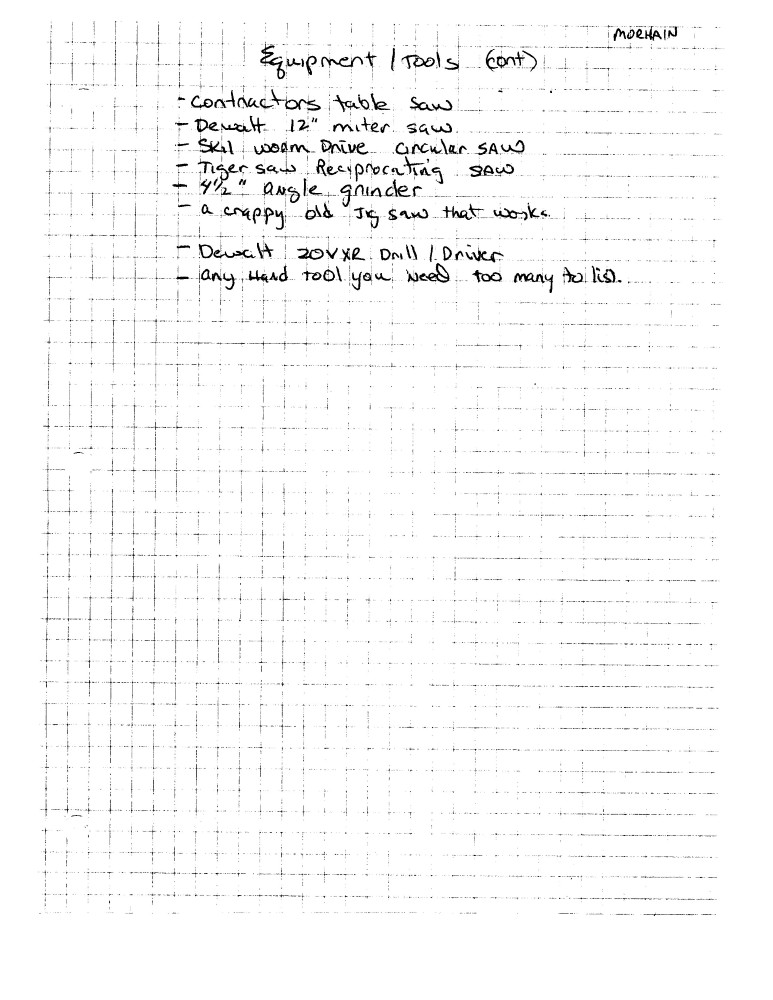 MORHAIN
Equipment / Tools (cont)
- contractors table saw
- Dewalt 12" miter saw
- Skil worm Drive circular SAW
- Tiger saw Reciprocating SAW
- 4½" angle grinder
- a crappy old Jig saw that works
- Dewalt 20V XR Drill / Driver
- any Hand tool you need too many to list.